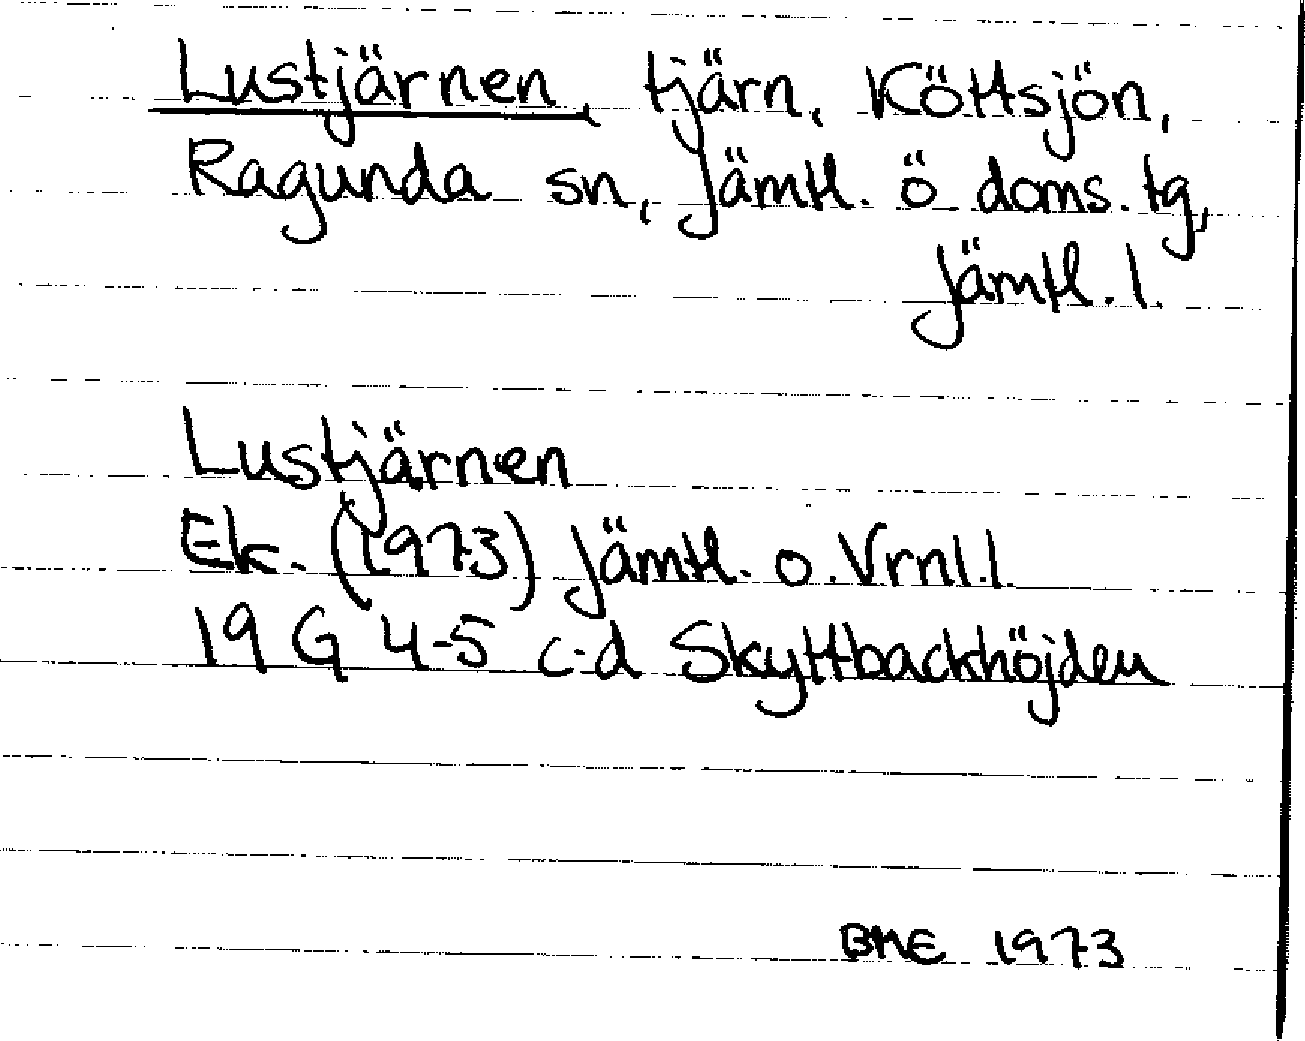 Lustjärnen, tjärn, Köttsjön,
Ragunda sn, Jämtl. ö doms. tg,
Jämtl. l.
Lustjärnen
Ek. (1973) Jämtl. o. Vrnl. l.
19 G 4-5 c-d Skyttbackhöjden
BME 1973